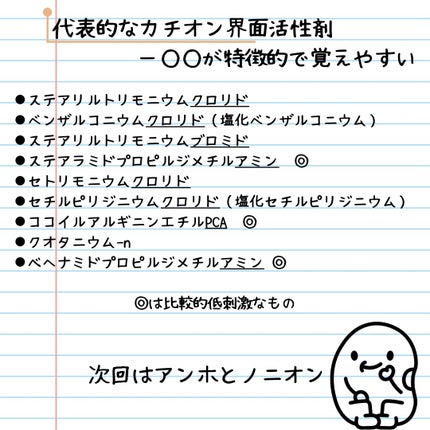 代表的なカチオン界面活性剤
－〇〇が特徴的で覚えやすい
●ステアリルトリモニウムクロリド
●ベンザルコニウムクロリド（塩化ベンザルコニウム）
●ステアリルトリモニウムブロミド
●ステアラミドプロピルジメチルアミン ◎
●セトリモニウムクロリド
●セチルピリジニウムクロリド（塩化セチルピリジニウム）
●ココイルアルギニンエチルPCA ◎
●クオタニウム-n
●ベヘナミドプロピルジメチルアミン ◎
◎は比較的低刺激なもの
次回はアンホとノニオン